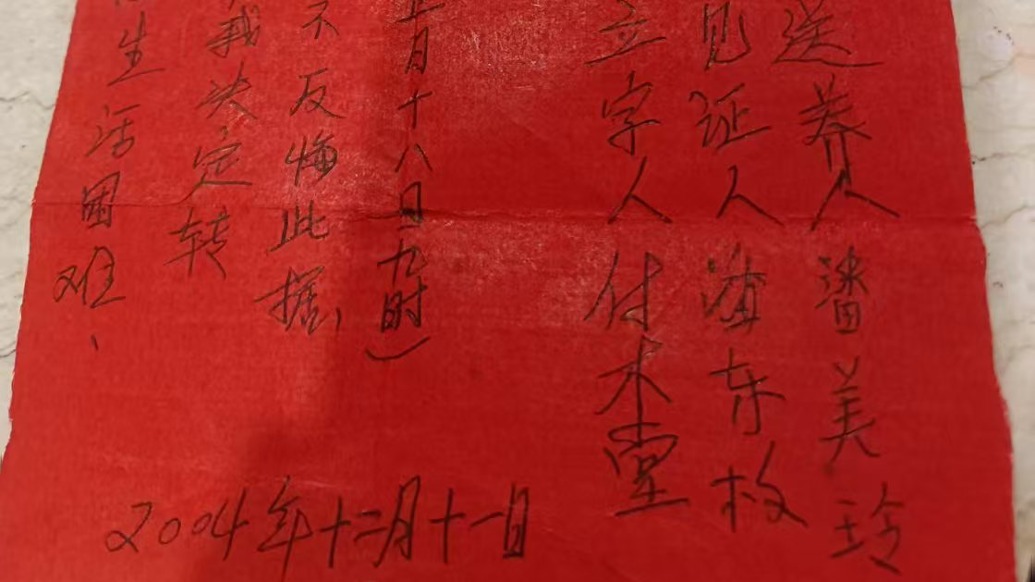 生活困难、
我决定转
不反悔此据,
月十八日九时)
立字人付木堂
见证人东枚
送养人潘美玲
2004年十二月十一日